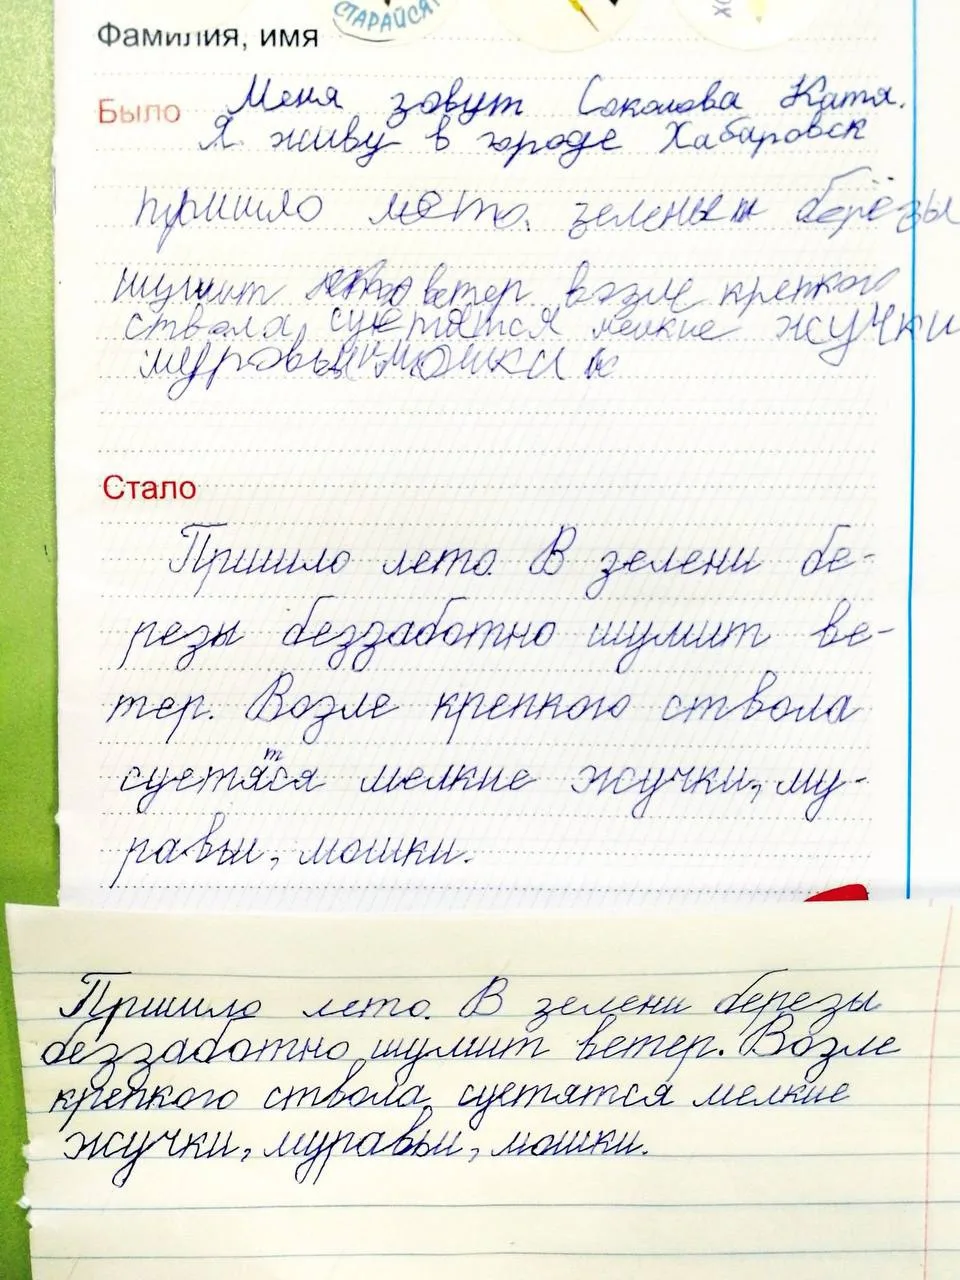 СТАРАЙСЯ
Фамилия, имя
Было
Меня зовут Соколова Катя.
Я живу в городе Хабаровск
пришло лето. зелены берёзы
шумит ветер возле крепкого
ствола, суетятся мелкие жучки
муровьи мошки
Стало
Пришло лето. В зелени бе-
резы беззаботно шумит ве-
тер. Возле крепкого ствола
суетятся мелкие жучки, му-
равьи, мошки.
Пришло лето. В зелени березы
беззаботно шумит ветер. Возле
крепкого ствола суетятся мелкие
жучки, муравьи, мошки.